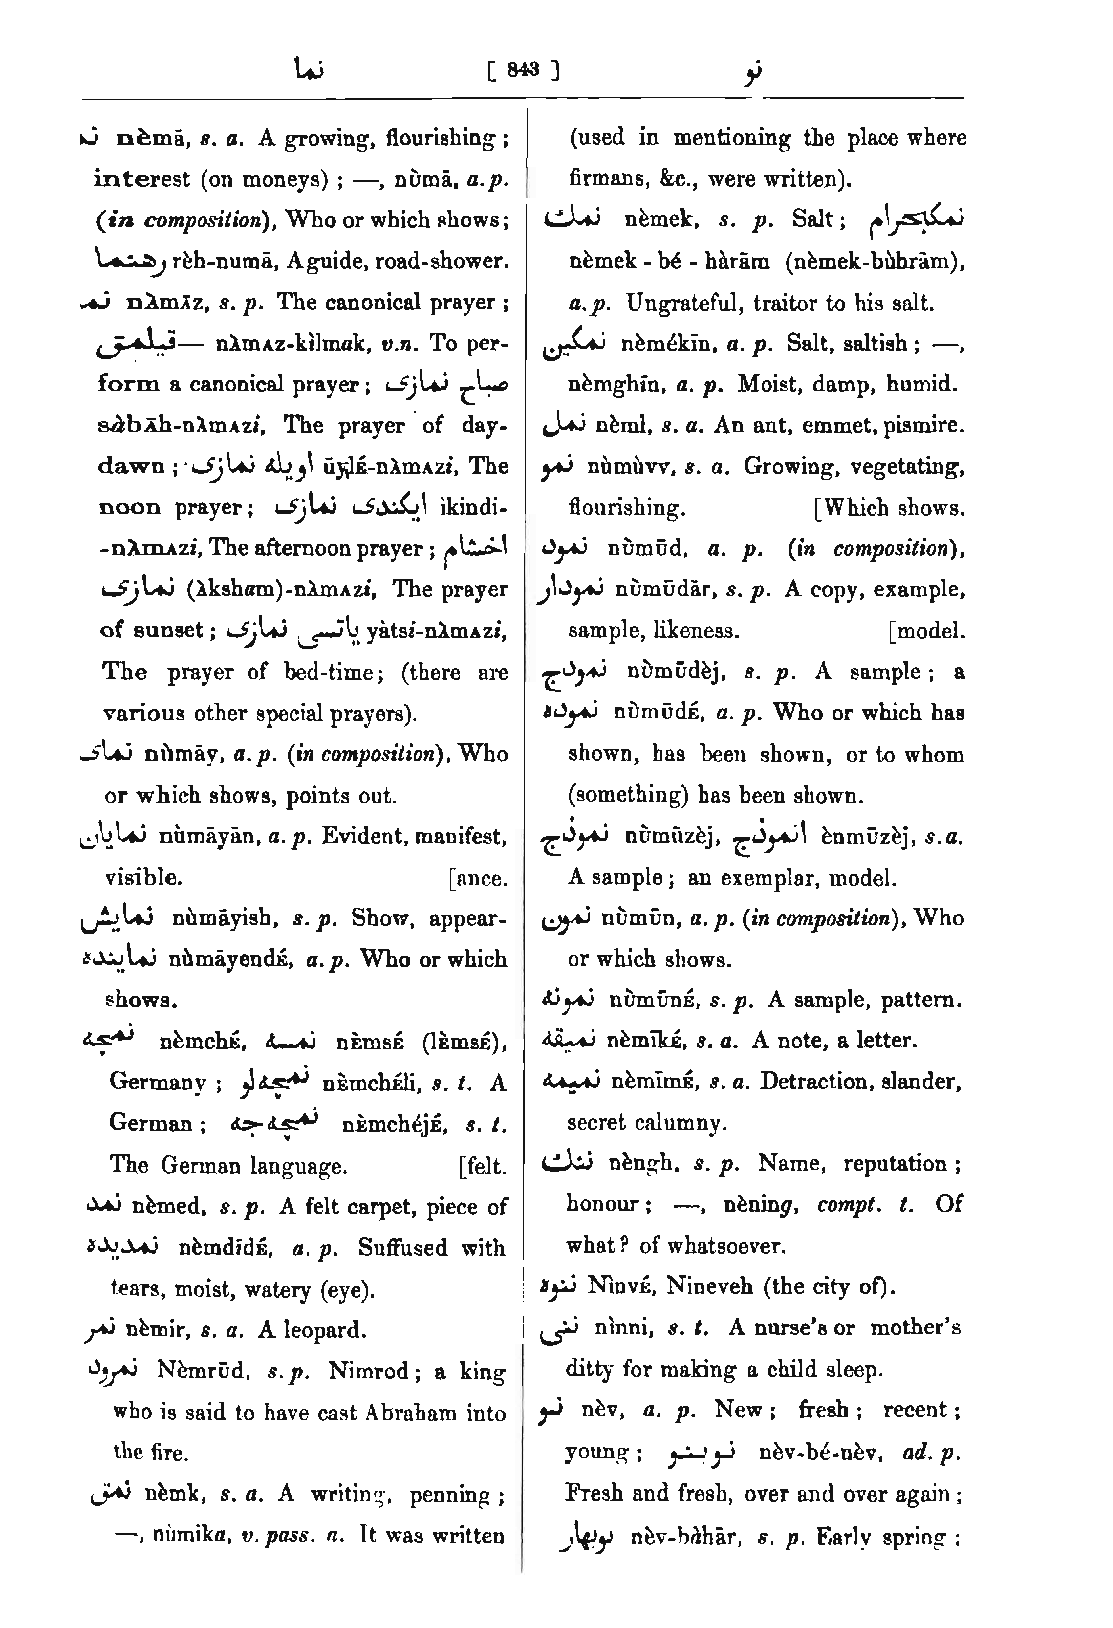 نما [ 843 ] نو
نما nèmā, s. a. A growing, flourishing ;
interest (on moneys) ; —, nùmā, a.p.
(in composition), Who or which shows;
رهنما rèh-numā, A guide, road-shower.
نماز nλmᴀz, s. p. The canonical prayer ;
قيلمق — nλmᴀz-kìlmak, v.n. To per-
form a canonical prayer ; صباح نمازى
sàbāh-nλmᴀzi, The prayer of day-
dawn ; اويله نمازى ūÿlÉ-nλmᴀzi, The
noon prayer ; ايكندى نمازى ìkindi-
-nλmᴀzi, The afternoon prayer ; اخشام
نمازى (λksham)-nλmᴀzi, The prayer
of sunset ; ياتسى نمازى yàtsi-nλmᴀzi,
The prayer of bed-time; (there are
various other special prayers).
نماى nùmāy, a.p. (in composition), Who
or which shows, points out.
نمايان nùmāyān, a. p. Evident, manifest,
visible. [ance.
نمايش nùmāyish, s. p. Show, appear-
نماينده nùmāyendÉ, a. p. Who or which
shows.
نمچه nèmchÉ, نمسه nÈmsÉ (lÈmsÉ),
Germany ; نمچه لو nÈmchÉli, s. t. A
German ; نمچه جه nÈmchéjÉ, s. t.
The German language. [felt.
نمد nèmed, s. p. A felt carpet, piece of
نمديده nèmdīdÉ, a. p. Suffused with
tears, moist, watery (eye).
نمر nèmir, s. a. A leopard.
نمرود Nèmrūd, s. p. Nimrod ; a king
who is said to have cast Abraham into
the fire.
نمق nèmk, s. a. A writing, penning ;
—, nùmika, v. pass. a. It was written
(used in mentioning the place where
firmans, &c., were written).
نمك nèmek, s. p. Salt ; نمكبحرام
nèmek - bé - hàrām (nèmek-bùhrām),
a.p. Ungrateful, traitor to his salt.
نمكين nèmékīn, a. p. Salt, saltish ; —,
nèmghīn, a. p. Moist, damp, humid.
نمل nèml, s. a. An ant, emmet, pismire.
نمو nùmùvv, s. a. Growing, vegetating,
flourishing. [Which shows.
نمود nùmūd, a. p. (in composition),
نمودار nùmūdār, s. p. A copy, example,
sample, likeness. [model.
نمودج nùmūdèj, s. p. A sample ; a
نموده nùmūdÉ, a. p. Who or which has
shown, has been shown, or to whom
(something) has been shown.
نموذج nùmūzèj, انموذج ènmūzèj, s.a.
A sample ; an exemplar, model.
نمون nùmūn, a. p. (in composition), Who
or which shows.
نمونه nùmūnÉ, s. p. A sample, pattern.
نميقه nèmīkÉ, s. a. A note, a letter.
نميمه nèmīmÉ, s. a. Detraction, slander,
secret calumny.
ننك nèngh, s. p. Name, reputation ;
honour ; —, nèning, compt. t. Of
what ? of whatsoever.
ننوه NìnvÉ, Nineveh (the city of).
ننى nìnni, s. t. A nurse's or mother's
ditty for making a child sleep.
نو nèv, a. p. New ; fresh ; recent ;
young ; نو بنو nèv-bé-nèv, ad. p.
Fresh and fresh, over and over again ;
نوبهار nèv-bàhār, s. p. Early spring ;